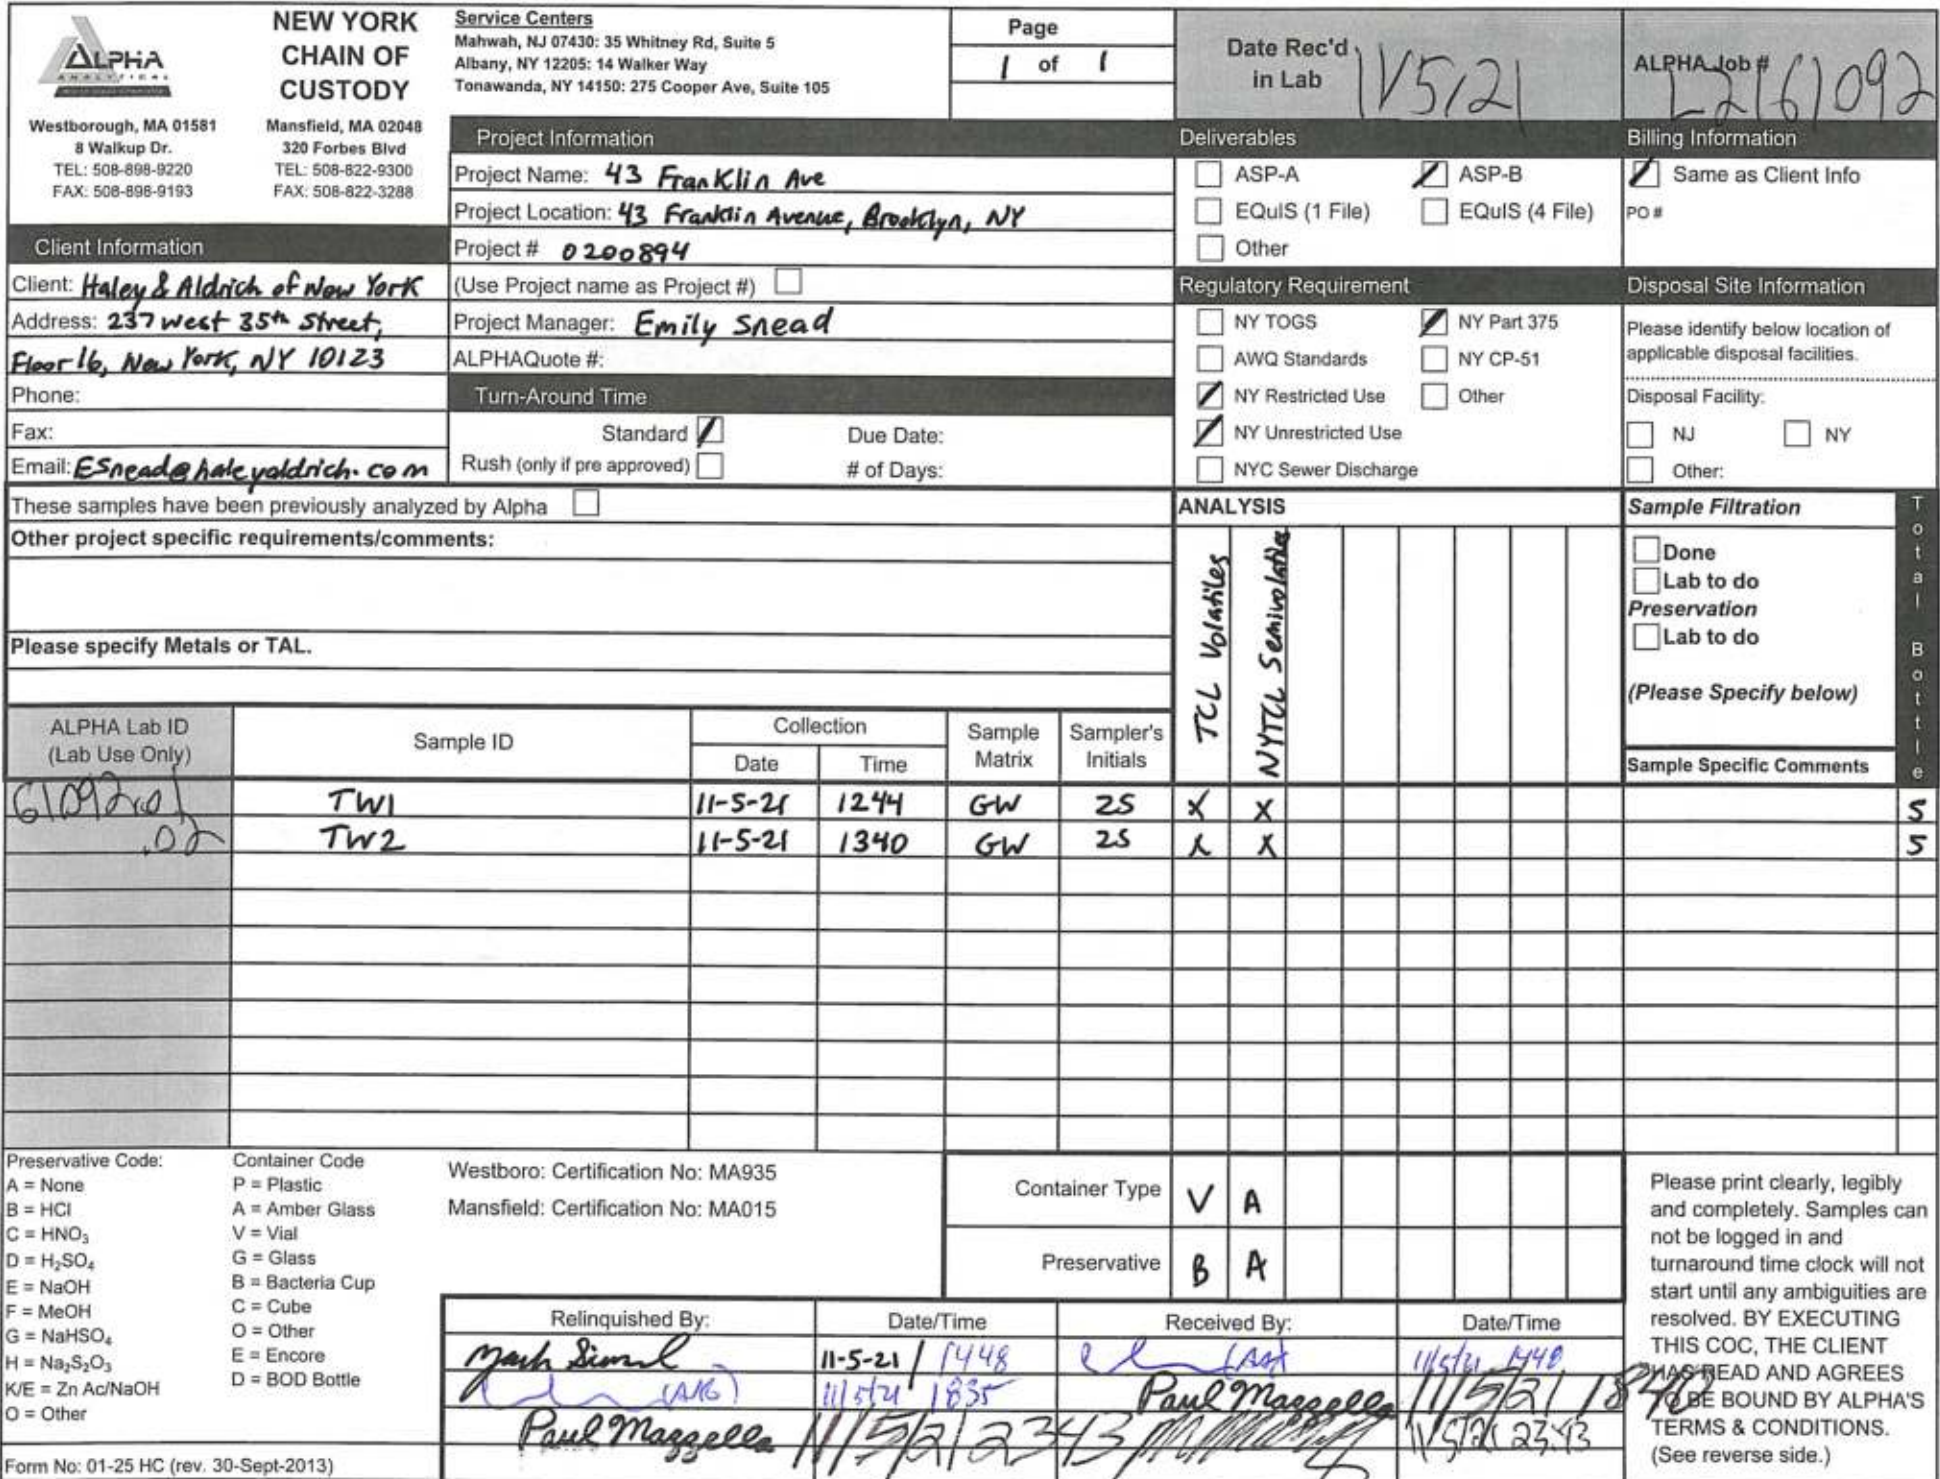 ALPHA
ANALYTICAL
Westborough, MA 01581
8 Walkup Dr.
TEL: 508-898-9220
FAX: 508-898-9193
NEW YORK
CHAIN OF
CUSTODY
Mansfield, MA 02048
320 Forbes Blvd
TEL: 508-822-9300
FAX: 508-822-3288
Service Centers
Mahwah, NJ 07430: 35 Whitney Rd, Suite 5
Albany, NY 12205: 14 Walker Way
Tonawanda, NY 14150: 275 Cooper Ave, Suite 105
Page
1 of 1
Date Rec'd
in Lab
11/5/21
ALPHA Job #
L2161092
Client Information
Client: Haley & Aldrich of New York
Address: 237 West 35th Street,
Floor 16, New York, NY 10123
Phone:
Fax:
Email: ESnead@haleyaldrich.com
Project Information
Project Name: 43 Franklin Ave
Project Location: 43 Franklin Avenue, Brooklyn, NY
Project # 0200894
(Use Project name as Project #)
Project Manager: Emily Snead
ALPHAQuote #:
Turn-Around Time
Standard Due Date:
Rush (only if pre approved) # of Days:
Deliverables
ASP-A ASP-B
EQuIS (1 File) EQuIS (4 File)
Other
Regulatory Requirement
NY TOGS NY Part 375
AWQ Standards NY CP-51
NY Restricted Use Other
NY Unrestricted Use
NYC Sewer Discharge
Billing Information
Same as Client Info
PO #
Disposal Site Information
Please identify below location of
applicable disposal facilities.
Disposal Facility:
NJ NY
Other:
These samples have been previously analyzed by Alpha
Other project specific requirements/comments:
Please specify Metals or TAL.
ANALYSIS
TCL Volatiles
NYTCL Semivolatiles
Sample Filtration
Done
Lab to do
Preservation
Lab to do
(Please Specify below)
Total Bottle
ALPHA Lab ID
(Lab Use Only)
Sample ID
Collection
Date Time
Sample
Matrix
Sampler's
Initials
Sample Specific Comments
61092-01 TW1 11-5-21 1244 GW ZS X X 5
.02 TW2 11-5-21 1340 GW ZS X X 5
Preservative Code:
A = None
B = HCl
C = HNO₃
D = H₂SO₄
E = NaOH
F = MeOH
G = NaHSO₄
H = Na₂S₂O₃
K/E = Zn Ac/NaOH
O = Other
Container Code
P = Plastic
A = Amber Glass
V = Vial
G = Glass
B = Bacteria Cup
C = Cube
O = Other
E = Encore
D = BOD Bottle
Westboro: Certification No: MA935
Mansfield: Certification No: MA015
Container Type V A
Preservative B A
Relinquished By: Date/Time Received By: Date/Time
11-5-21 / 1448 (AAL) 11/5/21 1448
(AAL) 11/5/21 1835 Paul Mazzella 11/5/21 1840
Paul Mazzella 11/5/21 2343 11/5/21 23:43
Please print clearly, legibly
and completely. Samples can
not be logged in and
turnaround time clock will not
start until any ambiguities are
resolved. BY EXECUTING
THIS COC, THE CLIENT
HAS READ AND AGREES
TO BE BOUND BY ALPHA'S
TERMS & CONDITIONS.
(See reverse side.)
Form No: 01-25 HC (rev. 30-Sept-2013)